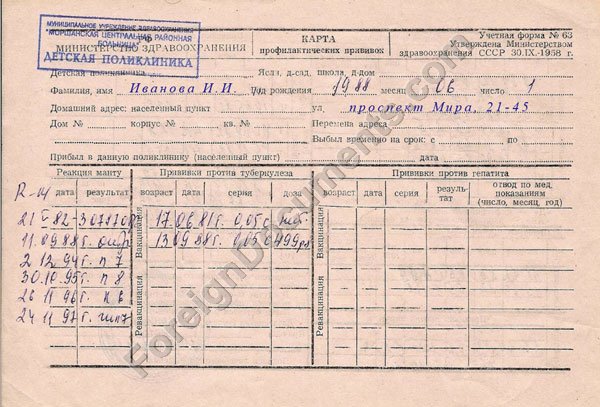 МУНИЦИПАЛЬНОЕ УЧРЕЖДЕНИЕ ЗДРАВООХРАНЕНИЯ
МОРШАНСКАЯ ЦЕНТРАЛЬНАЯ РАЙОННАЯ
БОЛЬНИЦА
ДЕТСКАЯ ПОЛИКЛИНИКА
МИНИСТЕРСТВО ЗДРАВООХРАНЕНИЯ
КАРТА
профилактических прививок
Учетная форма № 63
Утверждена Министерством
здравоохранения СССР 30.IX-1958 г.
Детская поликлиника Ясли, д-сад, школа, д-дом
Фамилия, имя Иванова И.И. год рождения 1988 месяц 06 число 1
Домашний адрес: населенный пункт ул. проспект Мира, 21-45
Дом № корпус № кв. № Перемена адреса
Выбыл временно на срок: с по
Прибыл в данную поликлинику (населенный пункт) дата
Реакция манту Прививки против туберкулеза Прививки против гепатита
дата результат возраст дата серия доза возраст дата серия результат отвод по мед. показаниям (число, месяц, год)
Вакцинация
Ревакцинация
Вакцинация
Ревакцинация
11.09.88г.
13 09.88г. 0,05
2 12.94г. п 7
30.10.95г. п 8
26 11 96г.
24 11 97г.
ForeignDocuments.com